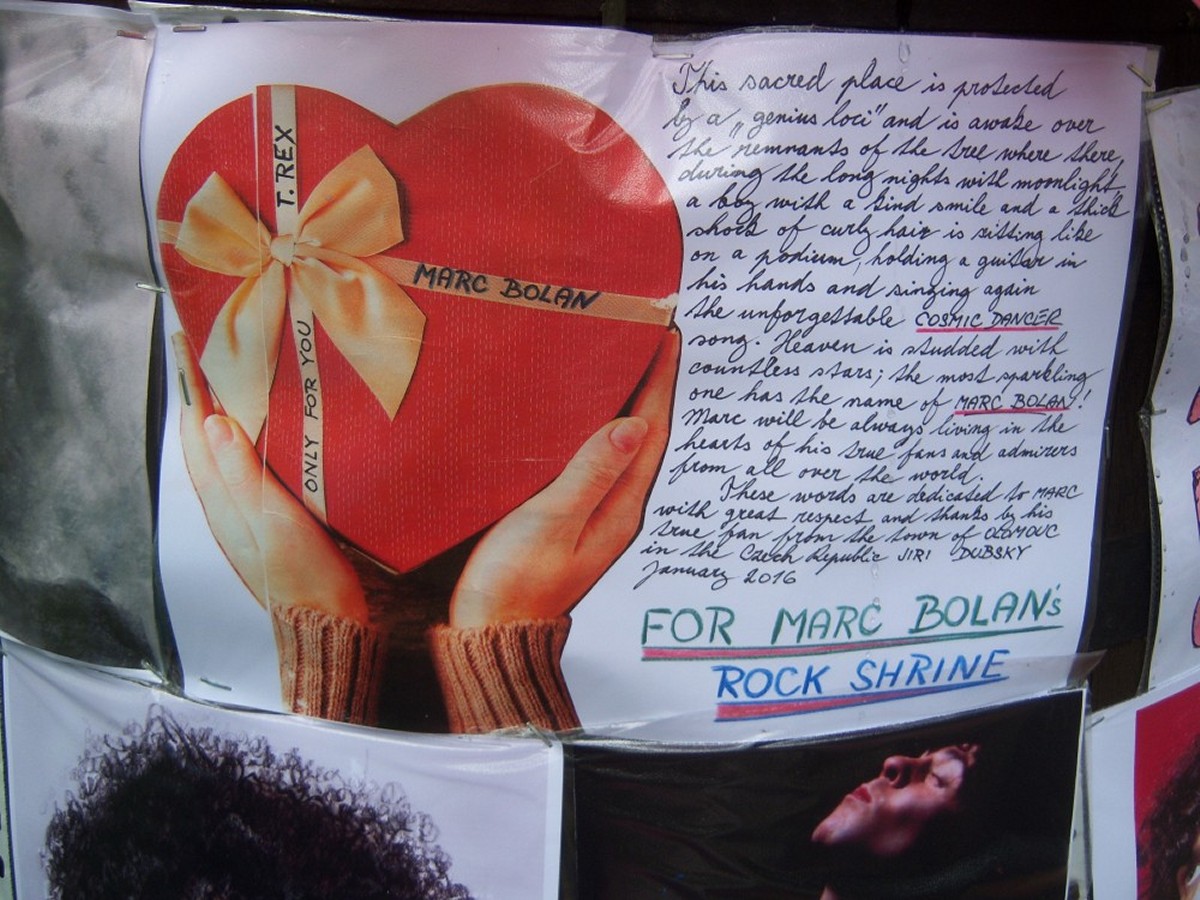 T. REX
MARC BOLAN
ONLY FOR YOU
This sacred place is protected
by a „genius loci" and is awake over
the remnants of the tree where there,
during the long nights with moonlight,
a boy with a kind smile and a thick
shock of curly hair is sitting like
on a podium, holding a guitar in
his hands and singing again
the unforgettable COSMIC DANCER
song. Heaven is studded with
countless stars; the most sparkling
one has the name of MARC BOLAN!
Marc will be always living in the
hearts of his true fans and admirers
from all over the world.
These words are dedicated to MARC
with great respect and thanks by his
true fan from the town of OLOMOUC
in the Czech Republic JIRI DUBSKY
January 2016
FOR MARC BOLAN's
ROCK SHRINE